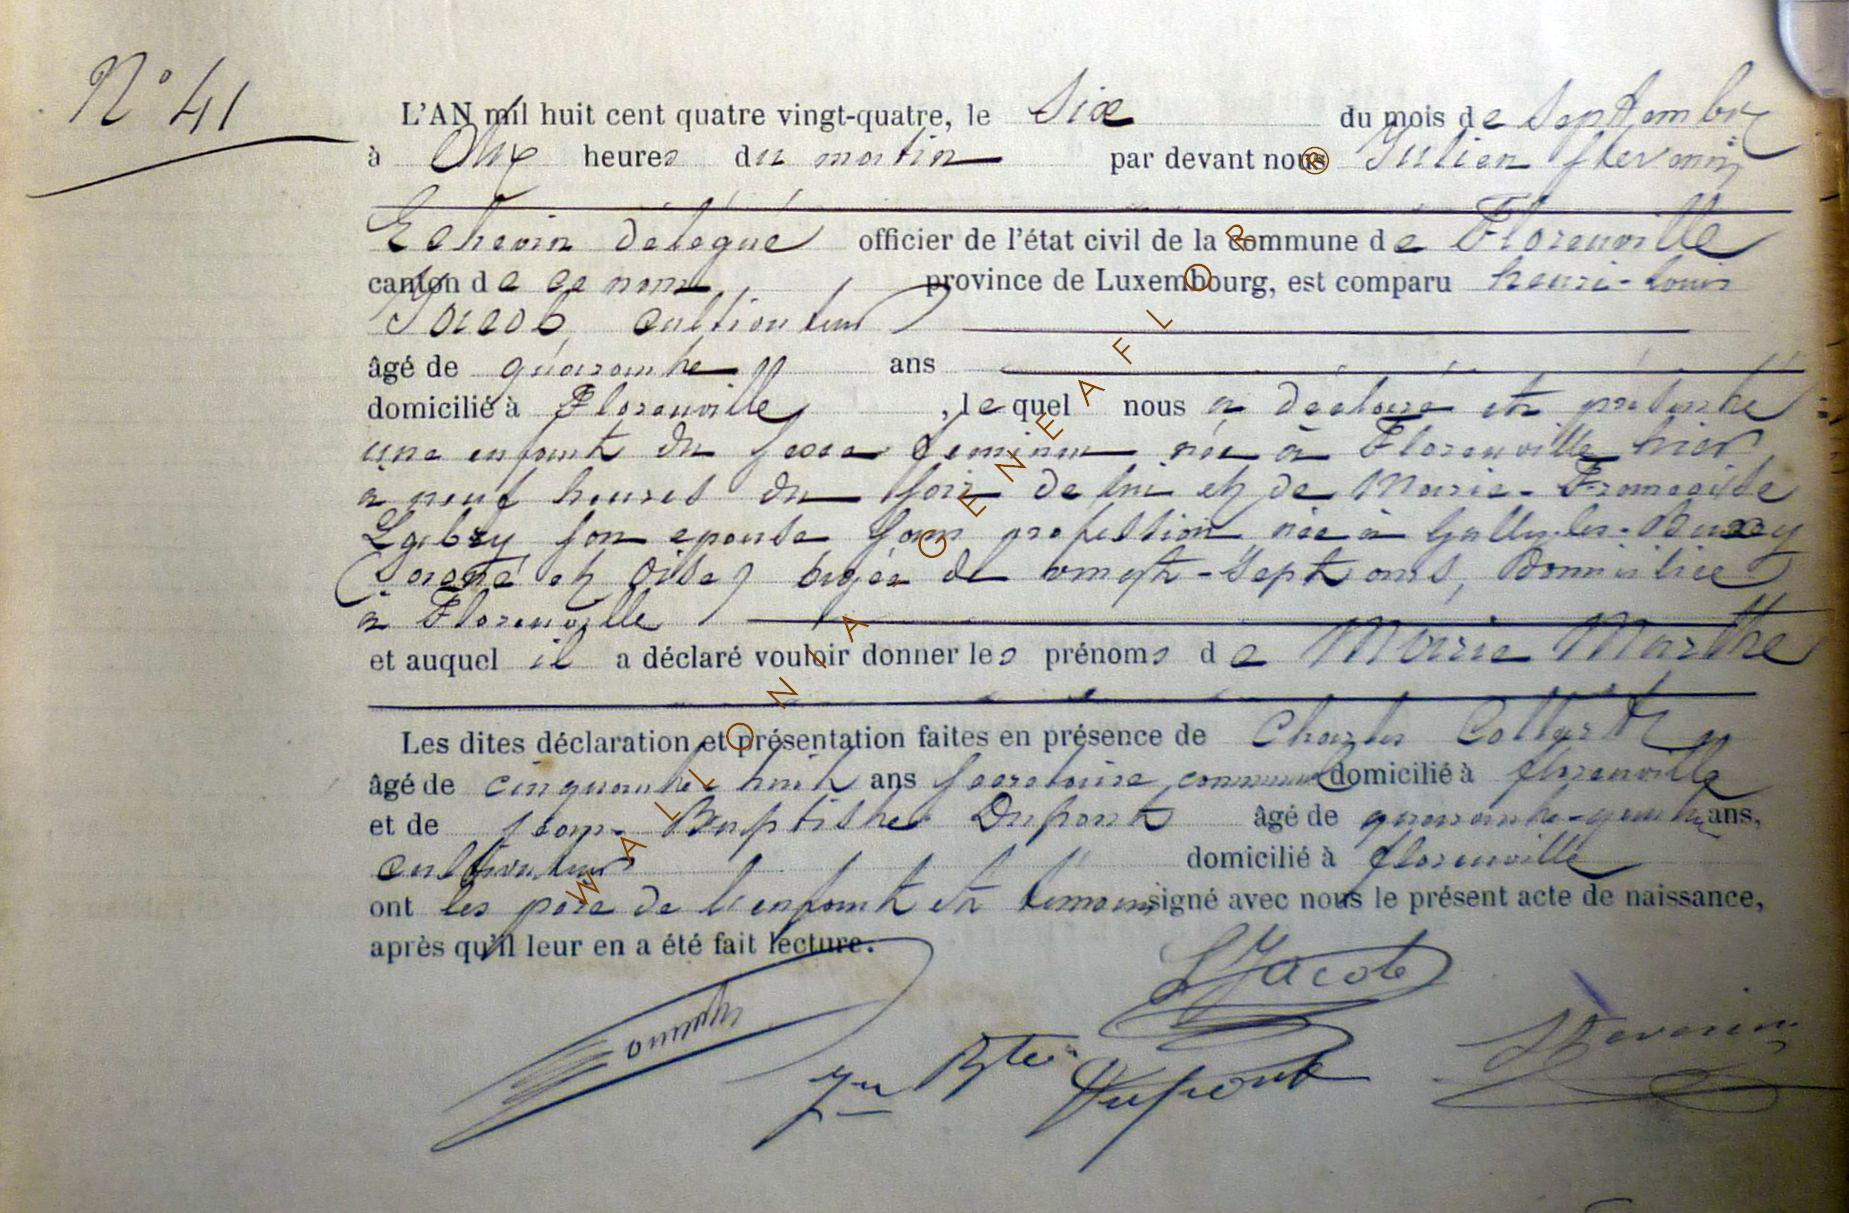 N° 41
L'AN mil huit cent quatre vingt-quatre, le six du mois de Septembre
à heures du matin par devant nous Julien Stevenin
Echevin délégué officier de l'état civil de la commune de Florenville
canton de ce nom province de Luxembourg, est comparu henri-Louis
Jacob cultivateur
âgé de quarante ans
domicilié à Florenville, lequel nous a déclaré et présenté
une enfant du sexe féminin née à Florenville hier
a neuf heures du soir de lui et de Marie-
son epouse sans profession née à
âgée de vingt-sept ans, domiciliée
à Florenville
et auquel il a déclaré vouloir donner les prénoms de Marie Marthe
Les dites déclaration et présentation faites en présence de Charles
âgé de cinquante huit ans secretaire communal domicilié à florenville
et de jean-Baptiste Dupont âgé de quarante- ans,
cultivateur domicilié à florenville
ont les père de l'enfant et témoins signé avec nous le présent acte de naissance,
après qu'il leur en a été fait lecture.
L Jacob
Jn Bte Dupont
Stevenin
WALLONIA GENEAFLOR ®